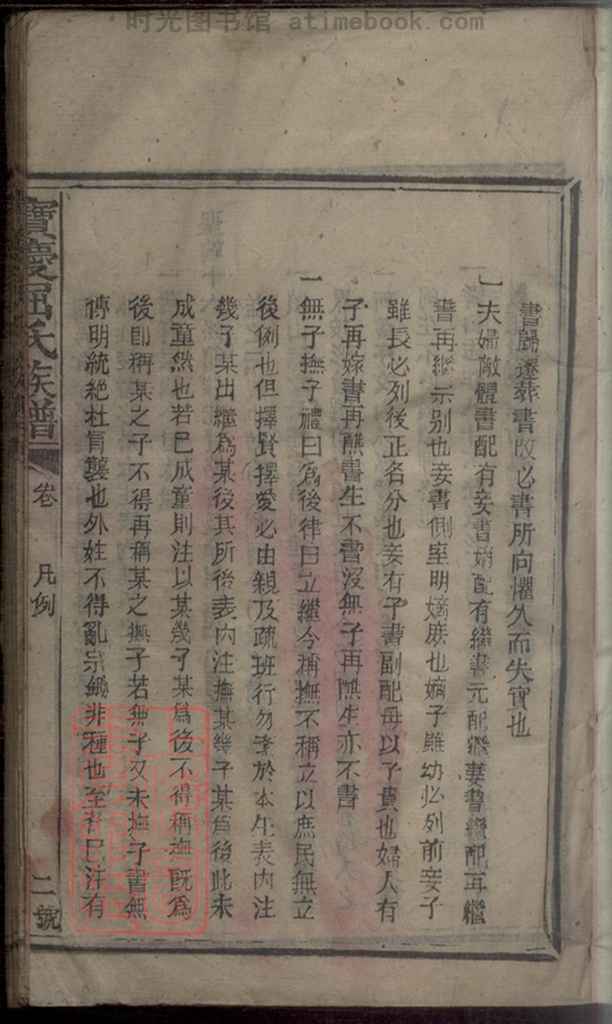 时光图书馆 atimebook.com
書歸遷葬書改必書所向懼久而失實也
一夫婦敵體書配有妾書嫡配有繼書元配繼妻書繼配再繼
書再繼示别也妾書側室明嫡庶也嫡子雖幼必列前妾子
雖長必列後正名分也妾有子書副配母以子貴也婦人有
子再嫁書再醮書生不書沒無子再醮生亦不書
一無子撫子禮曰爲後律曰立繼今稱撫不稱立以庶民無立
後例也但擇賢擇愛必由親及疏班行勿紊於本生表内注
幾子某出繼爲某後其所後表内注撫某幾子某爲後此未
成童然也若已成童則注以某幾子某爲後不得稱撫既爲
後卽稱某之子不得再稱某之撫子若無子又未撫子書無
傳明統絶杜冒襲也外姓不得亂宗鋤非種也至若已注有
寶慶屈氏族譜
卷
凡例
二號